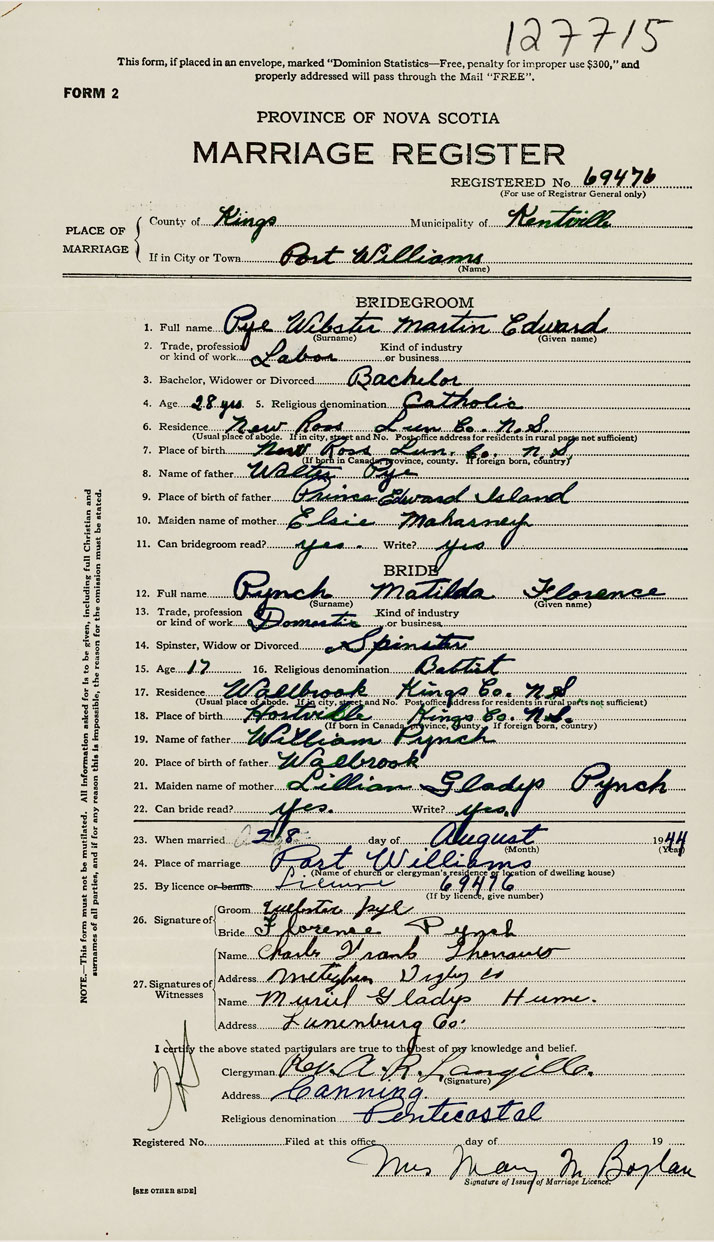 127715
This form, if placed in an envelope, marked "Dominion Statistics—Free, penalty for improper use $300," and
properly addressed will pass through the Mail "FREE".
FORM 2
PROVINCE OF NOVA SCOTIA
MARRIAGE REGISTER
REGISTERED No. 69476
(For use of Registrar General only)
PLACE OF MARRIAGE
County of Kings Municipality of Kentville
If in City or Town Port Williams
(Name)
BRIDEGROOM
1. Full name Pye Webster Martin Edward
(Surname) (Given name)
2. Trade, profession or kind of work Labor Kind of industry or business
3. Bachelor, Widower or Divorced Bachelor
4. Age 28 yrs 5. Religious denomination Catholic
6. Residence New Ross Lun Co. N.S.
(Usual place of abode. If in city, street and No. Post office address for residents in rural parts not sufficient)
7. Place of birth New Ross Lun. Co. N.S.
(If born in Canada, province, county. If foreign born, country)
8. Name of father Walter Pye
9. Place of birth of father Prince Edward Island
10. Maiden name of mother Elsie Maharney
11. Can bridegroom read? yes. Write? yes
BRIDE
12. Full name Pynch Matilda Florence
(Surname) (Given name)
13. Trade, profession or kind of work Domestic Kind of industry or business
14. Spinster, Widow or Divorced Spinster
15. Age 17 16. Religious denomination Babtist
17. Residence Wallbrook Kings Co. N.S.
(Usual place of abode. If in city, street and No. Post office address for residents in rural parts not sufficient)
18. Place of birth Hortville Kings Co. N.S.
(If born in Canada province, county. If foreign born, country)
19. Name of father William Pynch
20. Place of birth of father Walbrook
21. Maiden name of mother Lillian Gladys Pynch
22. Can bride read? yes. Write? yes.
23. When married 28 day of August 1944
(Month) (Year)
24. Place of marriage Port Williams
(Name of church or clergyman's residence or location of dwelling house)
25. By licence or banns License 69476
(If by licence, give number)
26. Signature of
Groom Webster pye
Bride Florence Pynch
27. Signatures of Witnesses
Name Charles Frank
Address Meteghan Digby Co
Name Muriel Gladys Hume.
Address Lunenburg Co.
I certify the above stated particulars are true to the best of my knowledge and belief.
Clergyman Rev. A. R. Langille.
(Signature)
Address Canning.
Religious denomination Pentecostal
Registered No. Filed at this office day of 19
Mrs Mary M Boylan
Signature of Issuer of Marriage Licence.
[SEE OTHER SIDE]
NOTE.—This form must not be mutilated. All information asked for is to be given, including full Christian and
surnames of all parties, and if for any reason this is impossible, the reason for the omission must be stated.